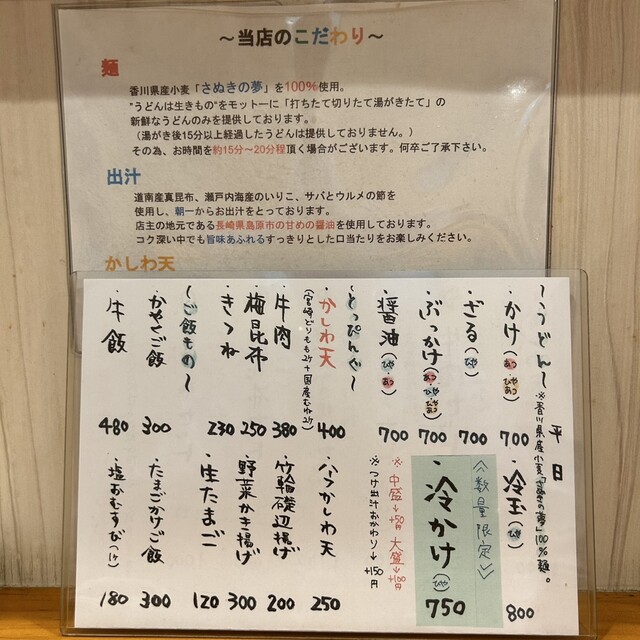 ～当店のこだわり～
麺
香川県産小麦「さぬきの夢」を100％使用。
"うどんは生きもの"をモットーに「打ちたて切りたて湯がきたて」の
新鮮なうどんのみを提供しております。
（湯がき後15分以上経過したうどんは提供しておりません。）
その為、お時間を約15分～20分程頂く場合がございます。何卒ご了承下さい。
出汁
道南産真昆布、瀬戸内海産のいりこ、サバとウルメの節を
使用し、朝一からお出汁をとっております。
店主の地元である長崎県島原市の甘めの醤油を使用しております。
コク深い中でも旨味あふれるすっきりとした口当たりをお楽しみください。
かしわ天
平日
～うどん～ ※香川県産小麦「さぬきの夢」100％麺。
・かけ（あつ・ひやあつ） 700
・ざる（ひや） 700
・ぶっかけ（あつ・ひや・ひやあつ） 700
・醤油（ひや・あつ） 700
～とっぴんぐ～
・かしわ天 400
（宮崎どりもも2ケ＋国産むね2ケ）
・牛肉 380
・梅昆布 250
・きつね 230
～ご飯もの～
・かやくご飯 300
・牛飯 480
・冷玉（ひや） 800
＜数量限定＞
・冷かけ（ひや） 750
※中盛→+50円 大盛→+100円
※つけ出汁おかわり→+150円
・ハーフかしわ天 250
・竹輪磯辺揚げ 200
・野菜かき揚げ 300
・生たまご 120
・たまごかけご飯 300
・塩おむすび（1ケ） 180